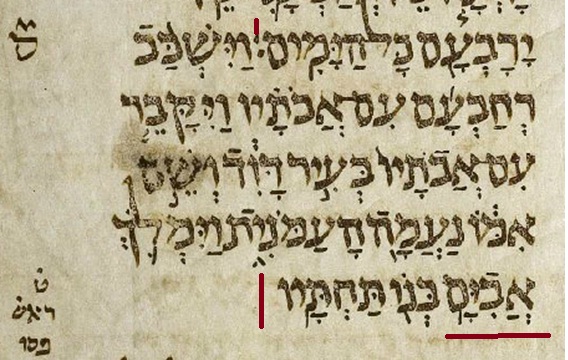 יָרָבְעָם כָּל הַיָּמִים׃ וַיִּשְׁכַּב
רְחַבְעָם עִם אֲבֹתָיו וַיִּקָּבֵר
עִם אֲבֹתָיו בְּעִיר דָּוִד וְשֵׁם
אִמּוֹ נַעֲמָה הָעַמֹּנִית וַיִּמְלֹךְ
אֲבִיָּם בְּנוֹ תַּחְתָּיו
ט
ראש
פסו